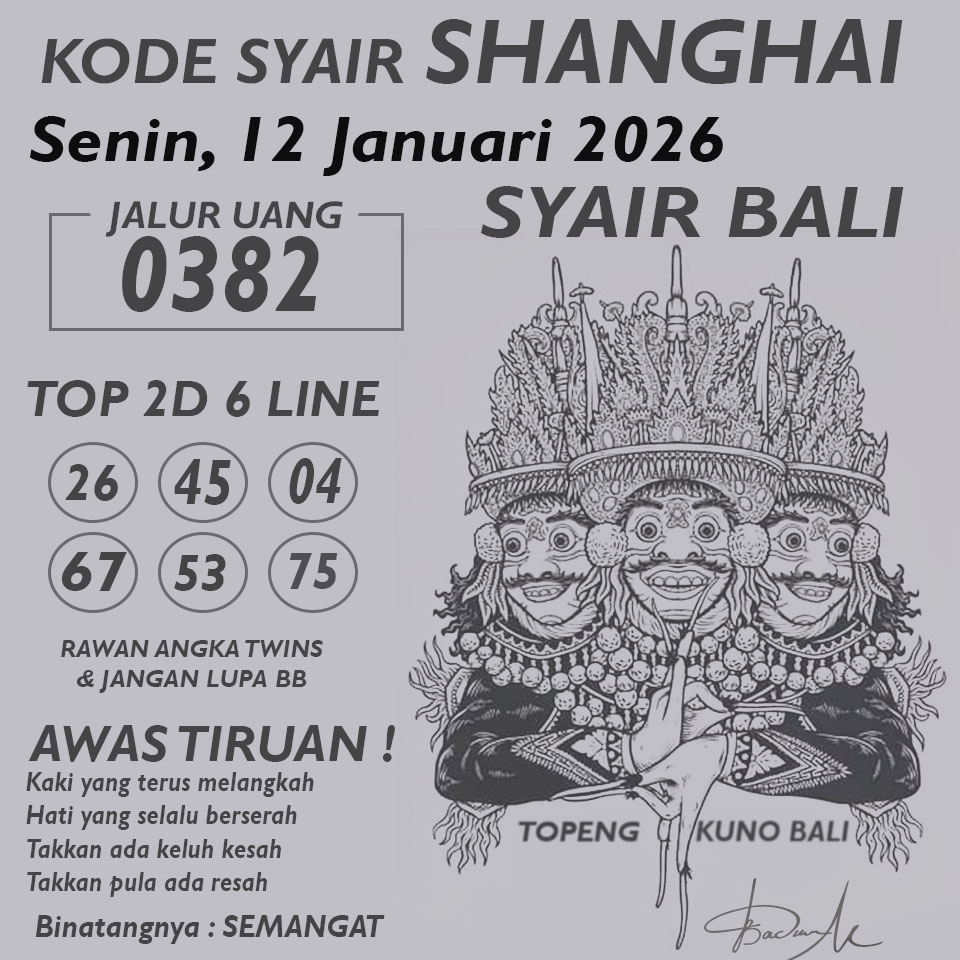 KODE SYAIR SHANGHAI
Senin, 12 Januari 2026
SYAIR BALI
JALUR UANG
0382
TOP 2D 6 LINE
26 45 04
67 53 75
RAWAN ANGKA TWINS
& JANGAN LUPA BB
AWAS TIRUAN !
Kaki yang terus melangkah
Hati yang selalu berserah
Takkan ada keluh kesah
Takkan pula ada resah
Binatangnya : SEMANGAT
TOPENG KUNO BALI